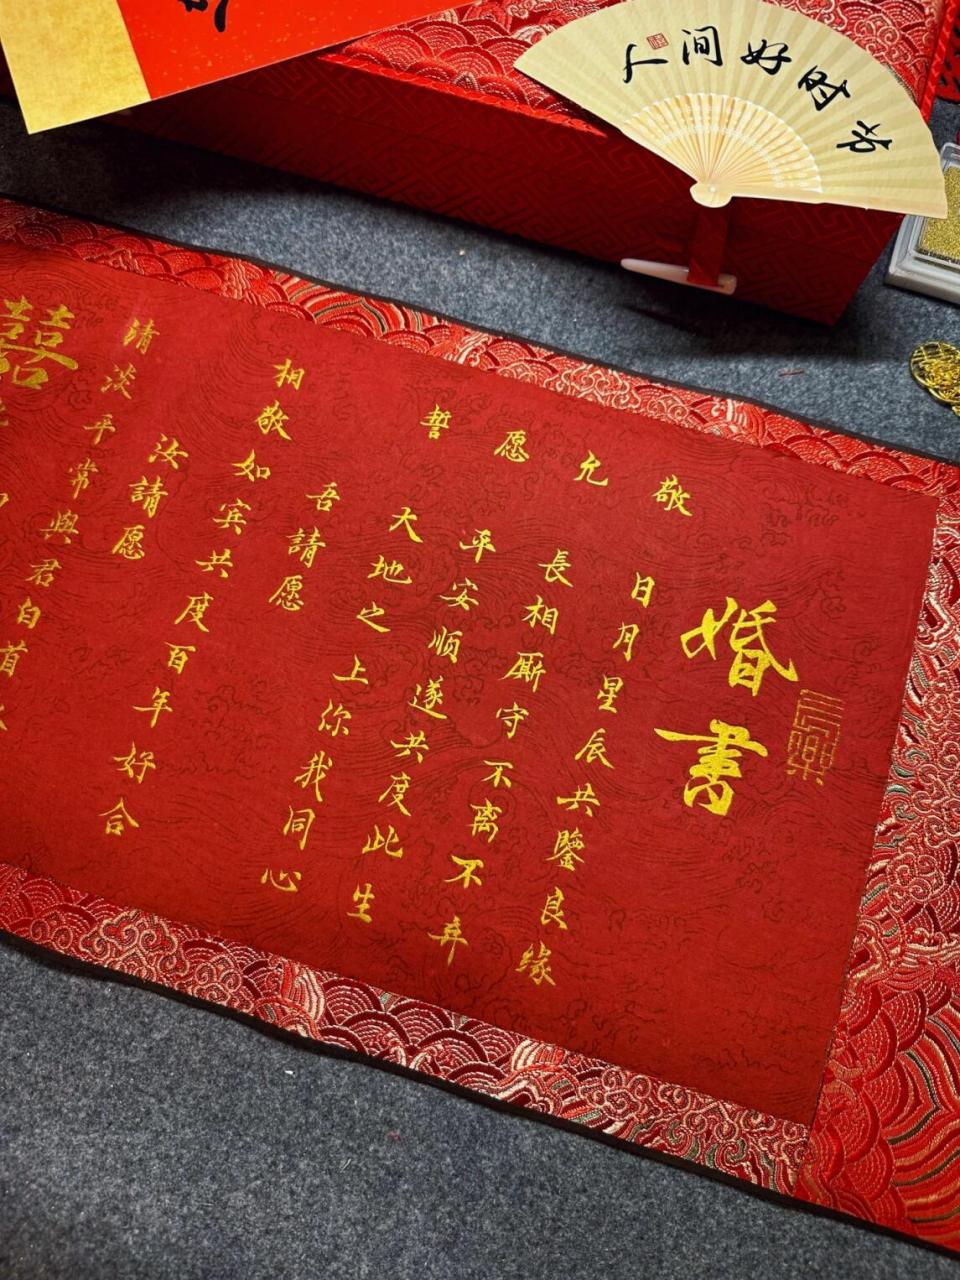 人间好时节
婚書
敬允愿誓
日月星辰共鑒良缘
長相厮守不离不弃
平安順遂共度此生
大地之上你我同心
吾請愿
相敬如宾共度百年好合
汝請愿
清淡平常與君白首
囍